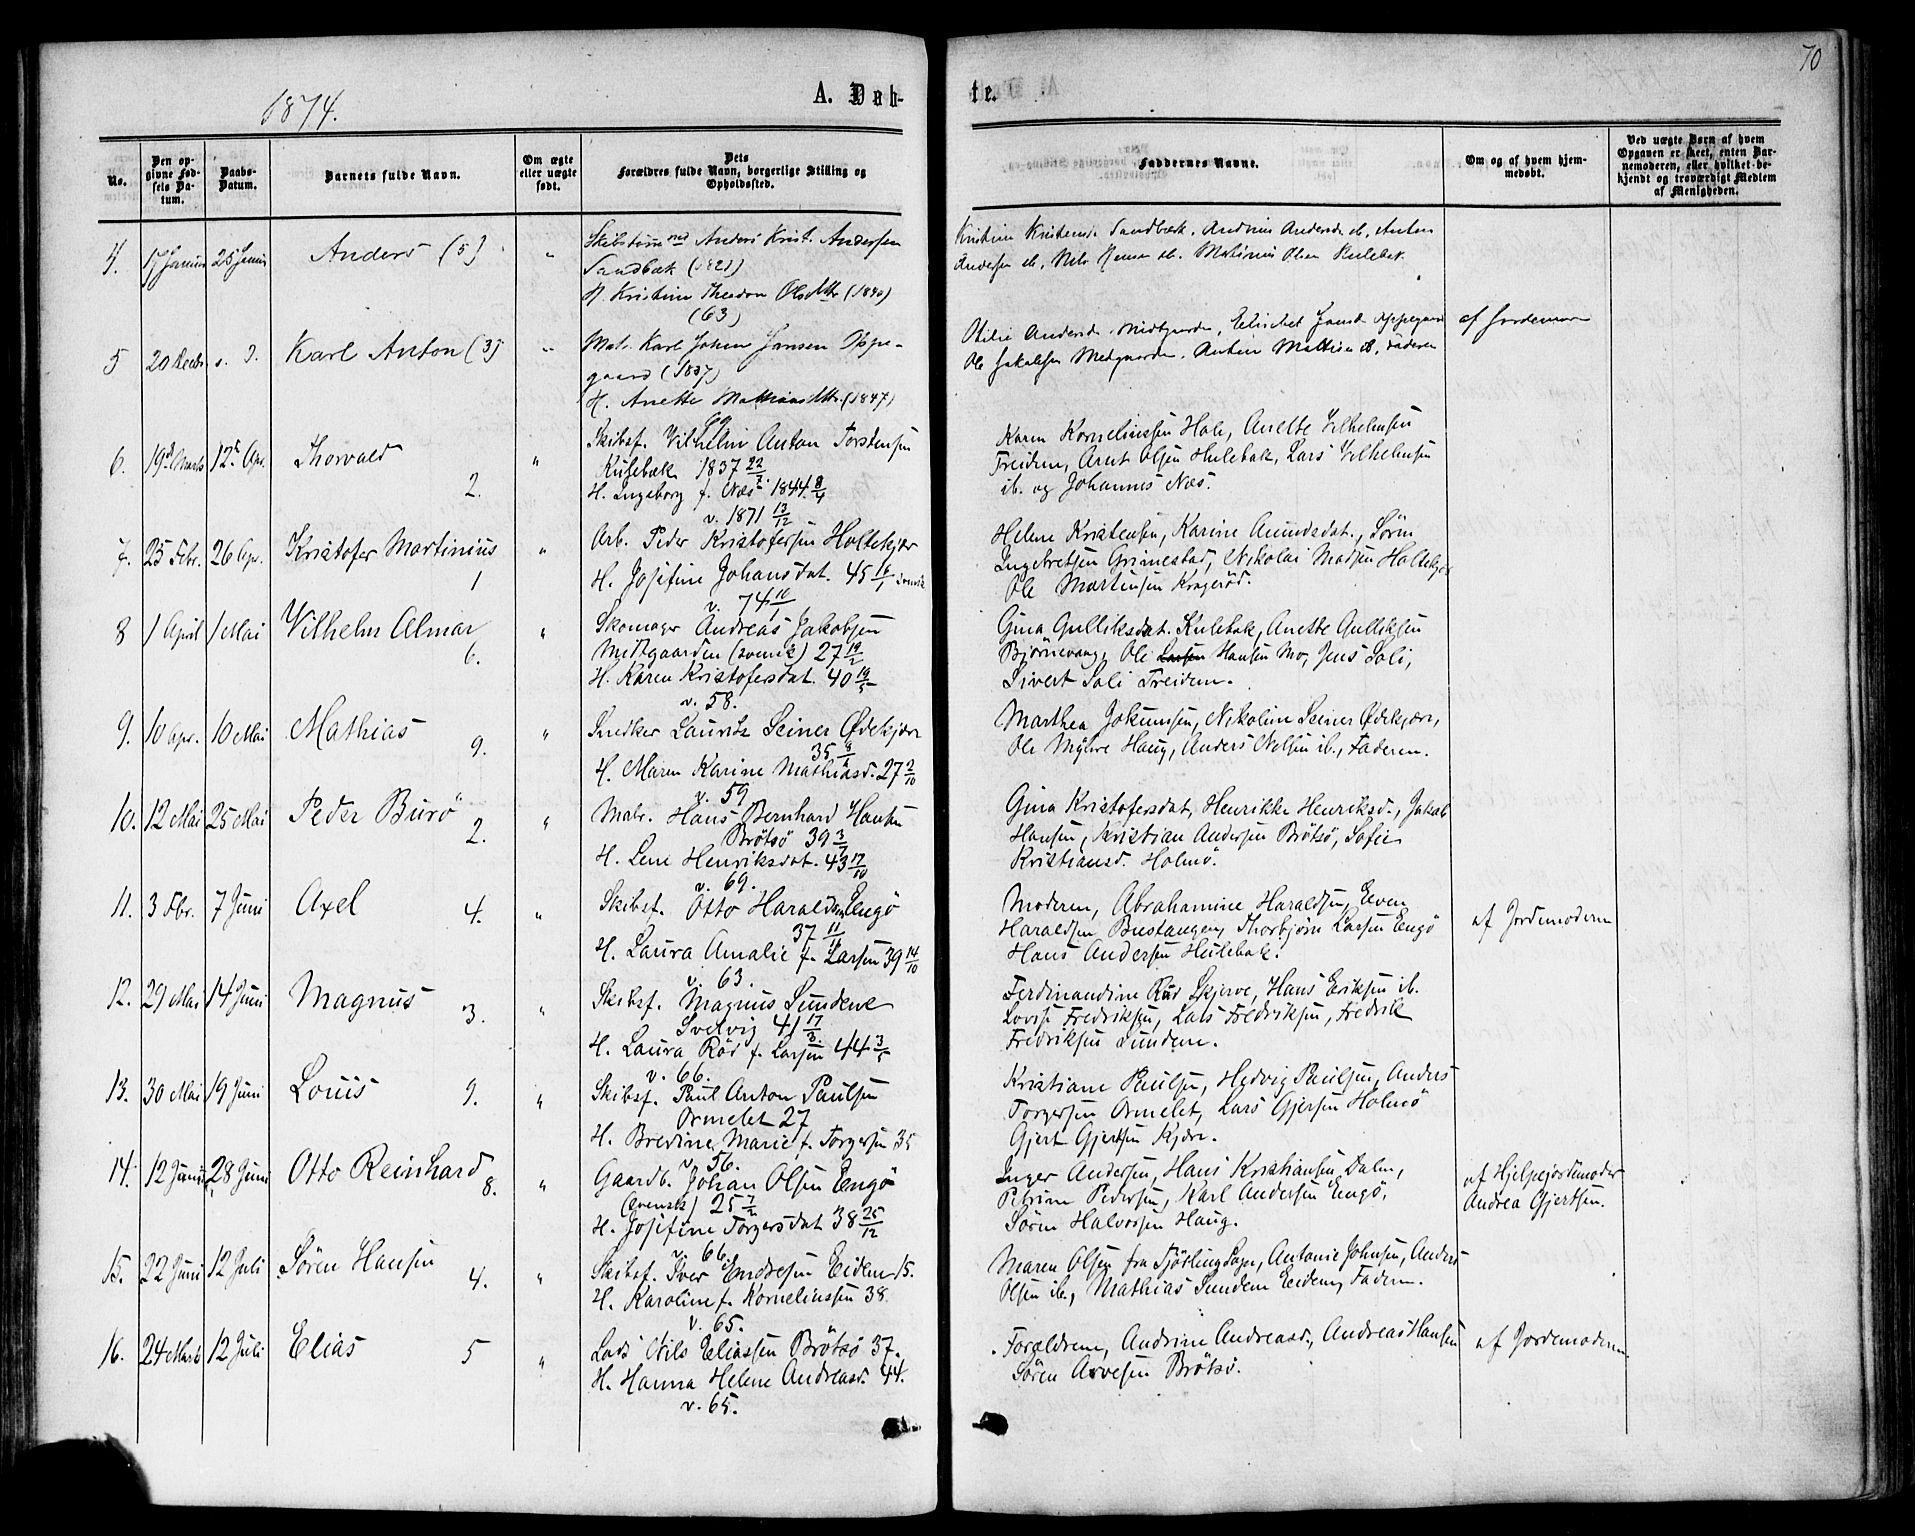 70
1874.
A. Døb-
te.
No.
Den op-
givne Fød-
sels Da-
tum.
Daabs-
Datum.
Barnets fulde Navn.
Om ægte
eller uægte
født.
Dets
Forældres fulde Navn, borgerlige Stilling og
Opholdssted.
Faddernes Navne.
Om og af hvem hjem-
medøbt.
Ved uægte Børn af hvem
Opgaven er skeet, enten Bar-
nemoderen, eller hvilket be-
kjendt og troværdigt Medlem
af Menigheden.
4. 17 Januar 25 Januar Anders (5) "
Anders Krist. Andersen
Sandbæk
H. Kristine Olsdttr (1840)
(63)
Sandbæk, Anton
Andersen ib, Olsen Hulebak
5 20 Decbr s. D. Karl Anton (3) "
Mat. Karl Johan Jansen Oppe-
gaard (1837)
H. Anette Mathiasdttr (1847)
69
Midtgaarden, Oppegaard
Ole Jakobsen Medgaarden, Faderen
af Jordemoren
6. 19d Marts 12te Apr. Thorvald 2. "
Skibsf. Vilhelm Anton Torstensen
Hulebæk 1837 22/2
H. Ingeborg f. Næs 1844 8/4
v. 1871 13/12
Karen Kornelinssen Hole, Anette Vilhelmsen
Treidene, Arnt Olsen Hulebak, Lars Vilhelmsen
ib. og Johannes Næs.
7. 25 Febr. 26 Apr. Kristofer Martinius 1 "
Arb. Peder Kristofersen Holtekjær
H. Josefine Johansdat. 45 6/1 svensk
v. 74 10/1
Helene Kristensen, Karine Amundsdat., Søren
Ingebretsen Grimestad, Nikolai Madsen Holtekjær
Ole Martinsen Kragerød.
8 1 April 1 Mai Vilhelm Almar 6. "
Skomager Andreas Jakobsen
Midtgaarden (svensk) 27 19/2
H. Karen Kristofersdat. 40 19/5
v. 58.
Gina Gulliksdat. Hulebak, Anette Gulliksen
Bjørnevaag, Ole Larsen Hansen Mo, Jens Soli,
Sivert Soli Treidene.
9. 10 Apr. 10 Mai Mathias 9. "
Snedker Lauritz Seiner Ødekjær
35 9/4
H. Maren Karine Mathiasd. 27 2/10
v. 59
Marthea Jokumsen, Nikoline Seiner Ødekjær,
Ole Myhre Haug, Anders Nelsen ib., Faderen.
10. 12 Mai 25 Mai Peder Burö 2. "
Matr. Hans Bernhard Hansen
Brötsö 39 3/7
H. Lene Henriksdat. 43 17/10
v. 69.
Gina Kristofersdat, Henrikke Henriksd., Jakob
Hansen, Kristian Andersen Brötsö, Sofie
Kristiansd. Holmö.
11. 3 Fbr. 7 Juni Axel 4. "
Skibsf. Otto Haraldsen Engö
37 11/11
H. Laura Amalie f. Larsen 39 14/10
v. 63.
Moderen, Abrahamine Haraldsen, Even
Haraldsen Bustangen, Thorbjörn Larsen Engö
Hans Andersen Hulebak.
af Jordemoderen
12. 29 Mai 14 Juni Magnus 3. "
Skibsf. Magnus Sundene
Svelvig 41 17/3.
H. Laura Röd f. Larsen 44 3/5
v. 66.
Ferdinandine Röd Skjerve, Hans Eriksen ib.
Lovise Fredriksen, Lars Fredriksen, Fredrik
Fredriksen Sundene.
13. 30 Mai 19 Juni Louis 9. "
Skibsf. Paul Anton Paulsen
Ormelet 27
H. Bredine Marie f. Torgersen 35
v. 56.
Kristiane Paulsen, Hedvig Paulsen, Anders
Torgersen Ormelet, Lars Gjersen Holmö
Gjert Gjertsen Kjær.
14. 12 Juni 28 Juni Otto Reinhard 8. "
Gaardb. Johan Olsen Engö
(svensk) 25 7/2
H. Josefine Torgersdat 38 25/12
v. 66.
Inger Andersen, Hans Kristiansen Dalen,
Petrine Pedersen, Karl Andersen Engö,
Sören Halvorsen Haug.
af Hjelpejordemoder
Andrea Gjertsen.
15. 22 Juni 12 Juli Sören Hansen 4. "
Skibsf. Iver Endresen Eidene 15.
H. Karoline f. Kornelinssen 38
v. 65.
Maren Olsen fra Sjötlingdager, Antonie Johnsen, Anders
Olsen ib., Mathias Sundene Eidene, Faderen.
16. 24 Marts 12 Juli Elias 5 "
Lods Nils Eliassen Brötsö 37.
H. Hanna Helene Andreasd. 44.
v. 65.
Foreldrene, Andrine Andreasd., Andreas Hansen
Sören Arvesen Brötsö.
af Jordemoderen.